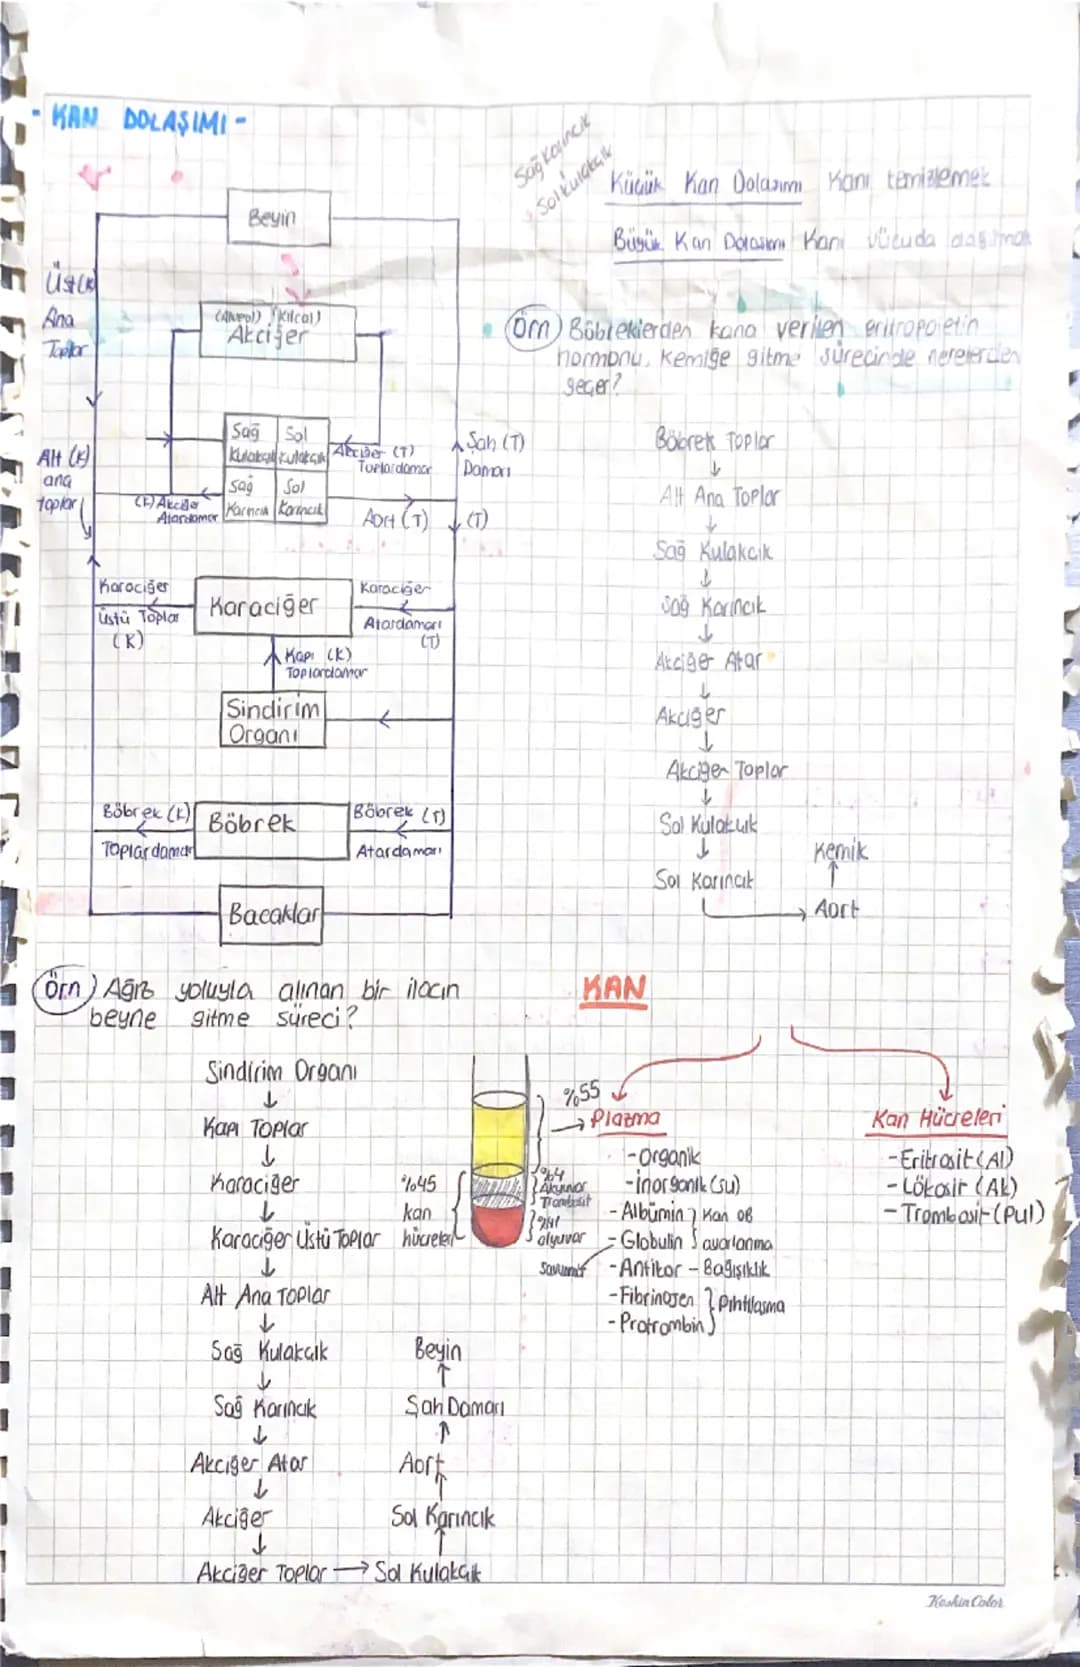 - KAN DOLAŞIMI -
Sağ Karıncık
Sol Kulakcık
Küçük Kan Dolaşımı Kanı temizlemek
Büyük Kan Dolaşımı Kanı vücuda dağıtmak
Beyin
Üst (K)
Ana
Toplar
(Alveol) (Kılcal)
Akciğer
Sağ Kulakcık
Sol Kulakcık
Sağ Karıncık
Sol Karıncık
Akciğer (T)
Toplardamar
Şah (T)
Damarı
Alt (K)
ana
toplar
(K) Akciğer
Atardamar
Aort (T)
(T)
Karaciğer
Üstü Toplar
(K)
Karaciğer
Karaciğer
Atardamarı
(T)
Kapı (K)
Toplardamar
Sindirim
Organı
Böbrek (K)
Toplardamar
Böbrek
Böbrek (T)
Atardamarı
Bacaklar
Örn) Böbreklerden kana verilen eritropoietin
hormonu, kemiğe gitme sürecinde nerelerden
geçer?
Böbrek Toplar
↓
Alt Ana Toplar
↓
Sağ Kulakcık
↓
Sağ Karıncık
↓
Akciğer Atar
↓
Akciğer
↓
Akciğer Toplar
↓
Sol Kulakcık
↓
Sol Karıncık
→ Aort
↑
Kemik
Örn) Ağız yoluyla alınan bir ilacın
beyne gitme süreci?
Sindirim Organı
↓
Kapı Toplar
↓
Karaciğer
↓
Karaciğer Üstü Toplar
↓
Alt Ana Toplar
↓
Sağ Kulakcık
↓
Sağ Karıncık
↓
Akciğer Atar
↓
Akciğer
↓
Akciğer Toplar → Sol Kulakcık
↑
Sol Karıncık
↑
Aort
↑
Şah Damarı
↑
Beyin
KAN
%55
→ Plazma
%45
kan
hücreleri
%4
Akyuvar
Trombosit
%41
alyuvar
- Organik
- İnorganik (su)
- Albümin
- Globulin
Kan OB
ayarlanma
- Antikor - Bağışıklık
- Fibrinojen
- Protrombin
Pıhtılaşma
Kan Hücreleri
- Eritrosit (Al)
- Lökosit (Ak)
- Trombosit (Pul)
Keskin Color